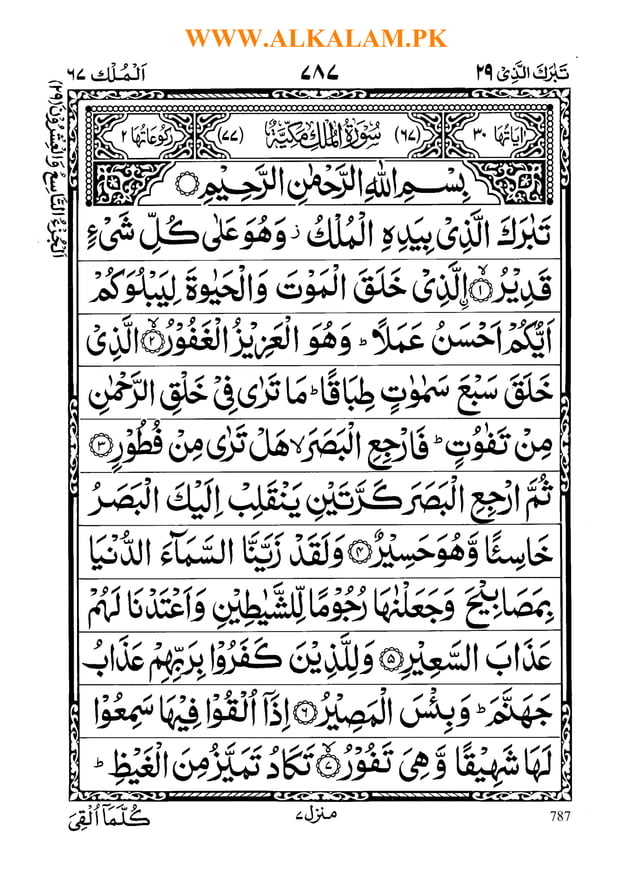 WWW.ALKALAM.PK
تَبٰرَكَ الَّذِیْ ۲۹
۷۸۷
اَلْمُلْك ۶۷
اٰیَاتُهَا ۳۰
(۶۷) سُوْرَةُ الْمُلْكِ مَكِّیَّةٌ (۷۷)
رُكُوْعَاتُهَا ۲
بِسْمِ اللّٰهِ الرَّحْمٰنِ الرَّحِیْمِ
تَبٰرَكَ الَّذِیْ بِیَدِهِ الْمُلْكُ ز وَهُوَ عَلٰی كُلِّ شَیْءٍ
قَدِیْرُ ۙ﴿۱﴾ اۨلَّذِیْ خَلَقَ الْمَوْتَ وَالْحَیٰوةَ لِیَبْلُوَكُمْ
اَیُّكُمْ اَحْسَنُ عَمَلًا ؕ وَهُوَ الْعَزِیْزُ الْغَفُوْرُ ۙ﴿۲﴾ الَّذِیْ
خَلَقَ سَبْعَ سَمٰوٰتٍ طِبَاقًا ؕ مَا تَرٰی فِیْ خَلْقِ الرَّحْمٰنِ
مِنْ تَفٰوُتٍ ؕ فَارْجِعِ الْبَصَرَ ۙ هَلْ تَرٰی مِنْ فُطُوْرٍ ﴿۳﴾
ثُمَّ ارْجِعِ الْبَصَرَ كَرَّتَیْنِ یَنْقَلِبْ اِلَیْكَ الْبَصَرُ
خَاسِئًا وَّهُوَ حَسِیْرٌ ﴿۴﴾ وَلَقَدْ زَیَّنَّا السَّمَآءَ الدُّنْیَا
بِمَصَابِیْحَ وَجَعَلْنٰهَا رُجُوْمًا لِّلشَّیٰطِیْنِ وَاَعْتَدْنَا لَهُمْ
عَذَابَ السَّعِیْرِ ﴿۵﴾ وَلِلَّذِیْنَ كَفَرُوْا بِرَبِّهِمْ عَذَابُ
جَهَنَّمَ ؕ وَبِئْسَ الْمَصِیْرُ ﴿۶﴾ اِذَاۤ اُلْقُوْا فِیْهَا سَمِعُوْا
لَهَا شَهِیْقًا وَّهِیَ تَفُوْرُ ۙ﴿۷﴾ تَكَادُ تَمَیَّزُ مِنَ الْغَیْظِ ؕ
اَلْجُزْءُ التَّاسِعُ وَالْعِشْرُوْنَ (۲۹)
787
منزل ۷
كُلَّمَاۤ اُلْقِیَ